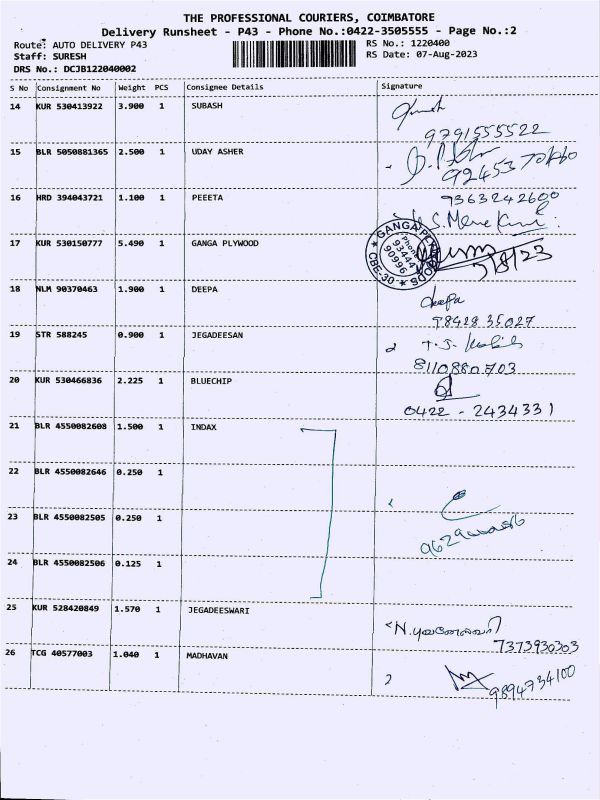 THE PROFESSIONAL COURIERS, COIMBATORE
Delivery Runsheet - P43 - Phone No.:0422-3505555 - Page No.:2
Route: AUTO DELIVERY P43 RS No.: 1220400
Staff: SURESH RS Date: 07-Aug-2023
DRS No.: DCJB122040002
S No Consignment No Weight PCS Consignee Details Signature
14 KUR 530413922 3.900 1 SUBASH
9791555522
15 BLR 5050881365 2.500 1 UDAY ASHER
16 HRD 394043721 1.100 1 PEEETA 9363242600
17 KUR 530150777 5.490 1 GANGA PLYWOOD
GANGA
Phone
93444
90996
CBE-30
7/8/23
18 NLM 90370463 1.900 1 DEEPA
deepa
98428 35027
19 STR 588245 0.900 1 JEGADEESAN
8110880703
20 KUR 530466836 2.225 1 BLUECHIP
0422 - 2434331
21 BLR 4550082608 1.500 1 INDAX
22 BLR 4550082646 0.250 1
23 BLR 4550082505 0.250 1
24 BLR 4550082506 0.125 1
25 KUR 528420849 1.570 1 JEGADEESWARI
7373930303
26 TCG 40577003 1.040 1 MADHAVAN
9894734100